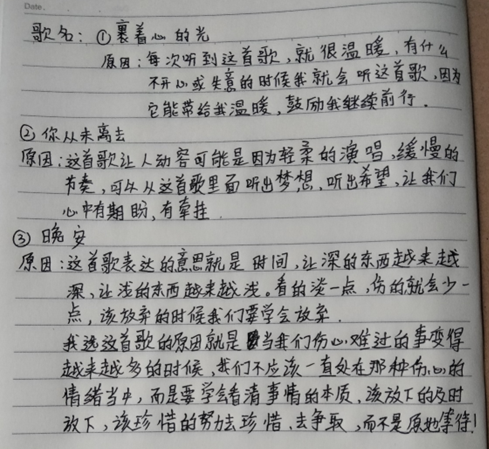 Date.
歌名：①裹着心的光
原因：每次听到这首歌，就很温暖，有什么
不开心或失意的时候我就会听这首歌，因为
它能带给我温暖，鼓励我继续前行．
②你从未离去
原因：这首歌让人动容可能是因为轻柔的演唱，缓慢的
节奏，可以从这首歌里面听出梦想、听出希望，让我们
心中有期盼，有牵挂．
③晚安
原因：这首歌表达的意思就是时间，让深的东西越来越
深、让浅的东西越来越浅。看的淡一点，伤的就会少一
点，该放弃的时候我们要学会放弃．
我选这首歌的原因就是当我们伤心难过的事变得
越来越多的时候，我们不应该一直处在那种伤心的
情绪当中，而是要学会看清事情的本质，该放下的及时
放下，该珍惜的努力去珍惜、去争取，而不是原地等待！